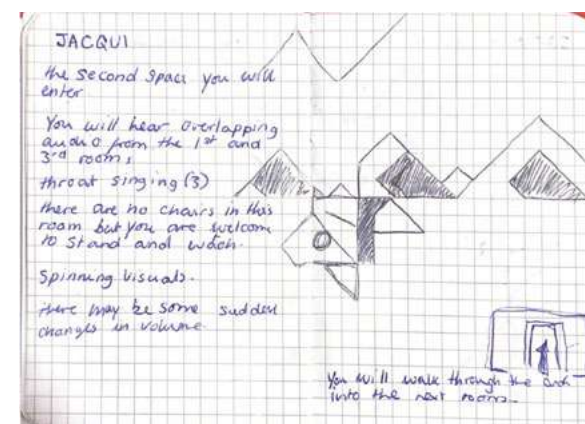 JACQUI
the second space you will
enter
You will hear overlapping
audio from the 1st and
3rd rooms
throat singing (3)
there are no chairs in this
room but you are welcome
to stand and watch.
Spinning visuals.
there may be some sudden
changes in volume.
You will walk through the arch
into the next rooms.